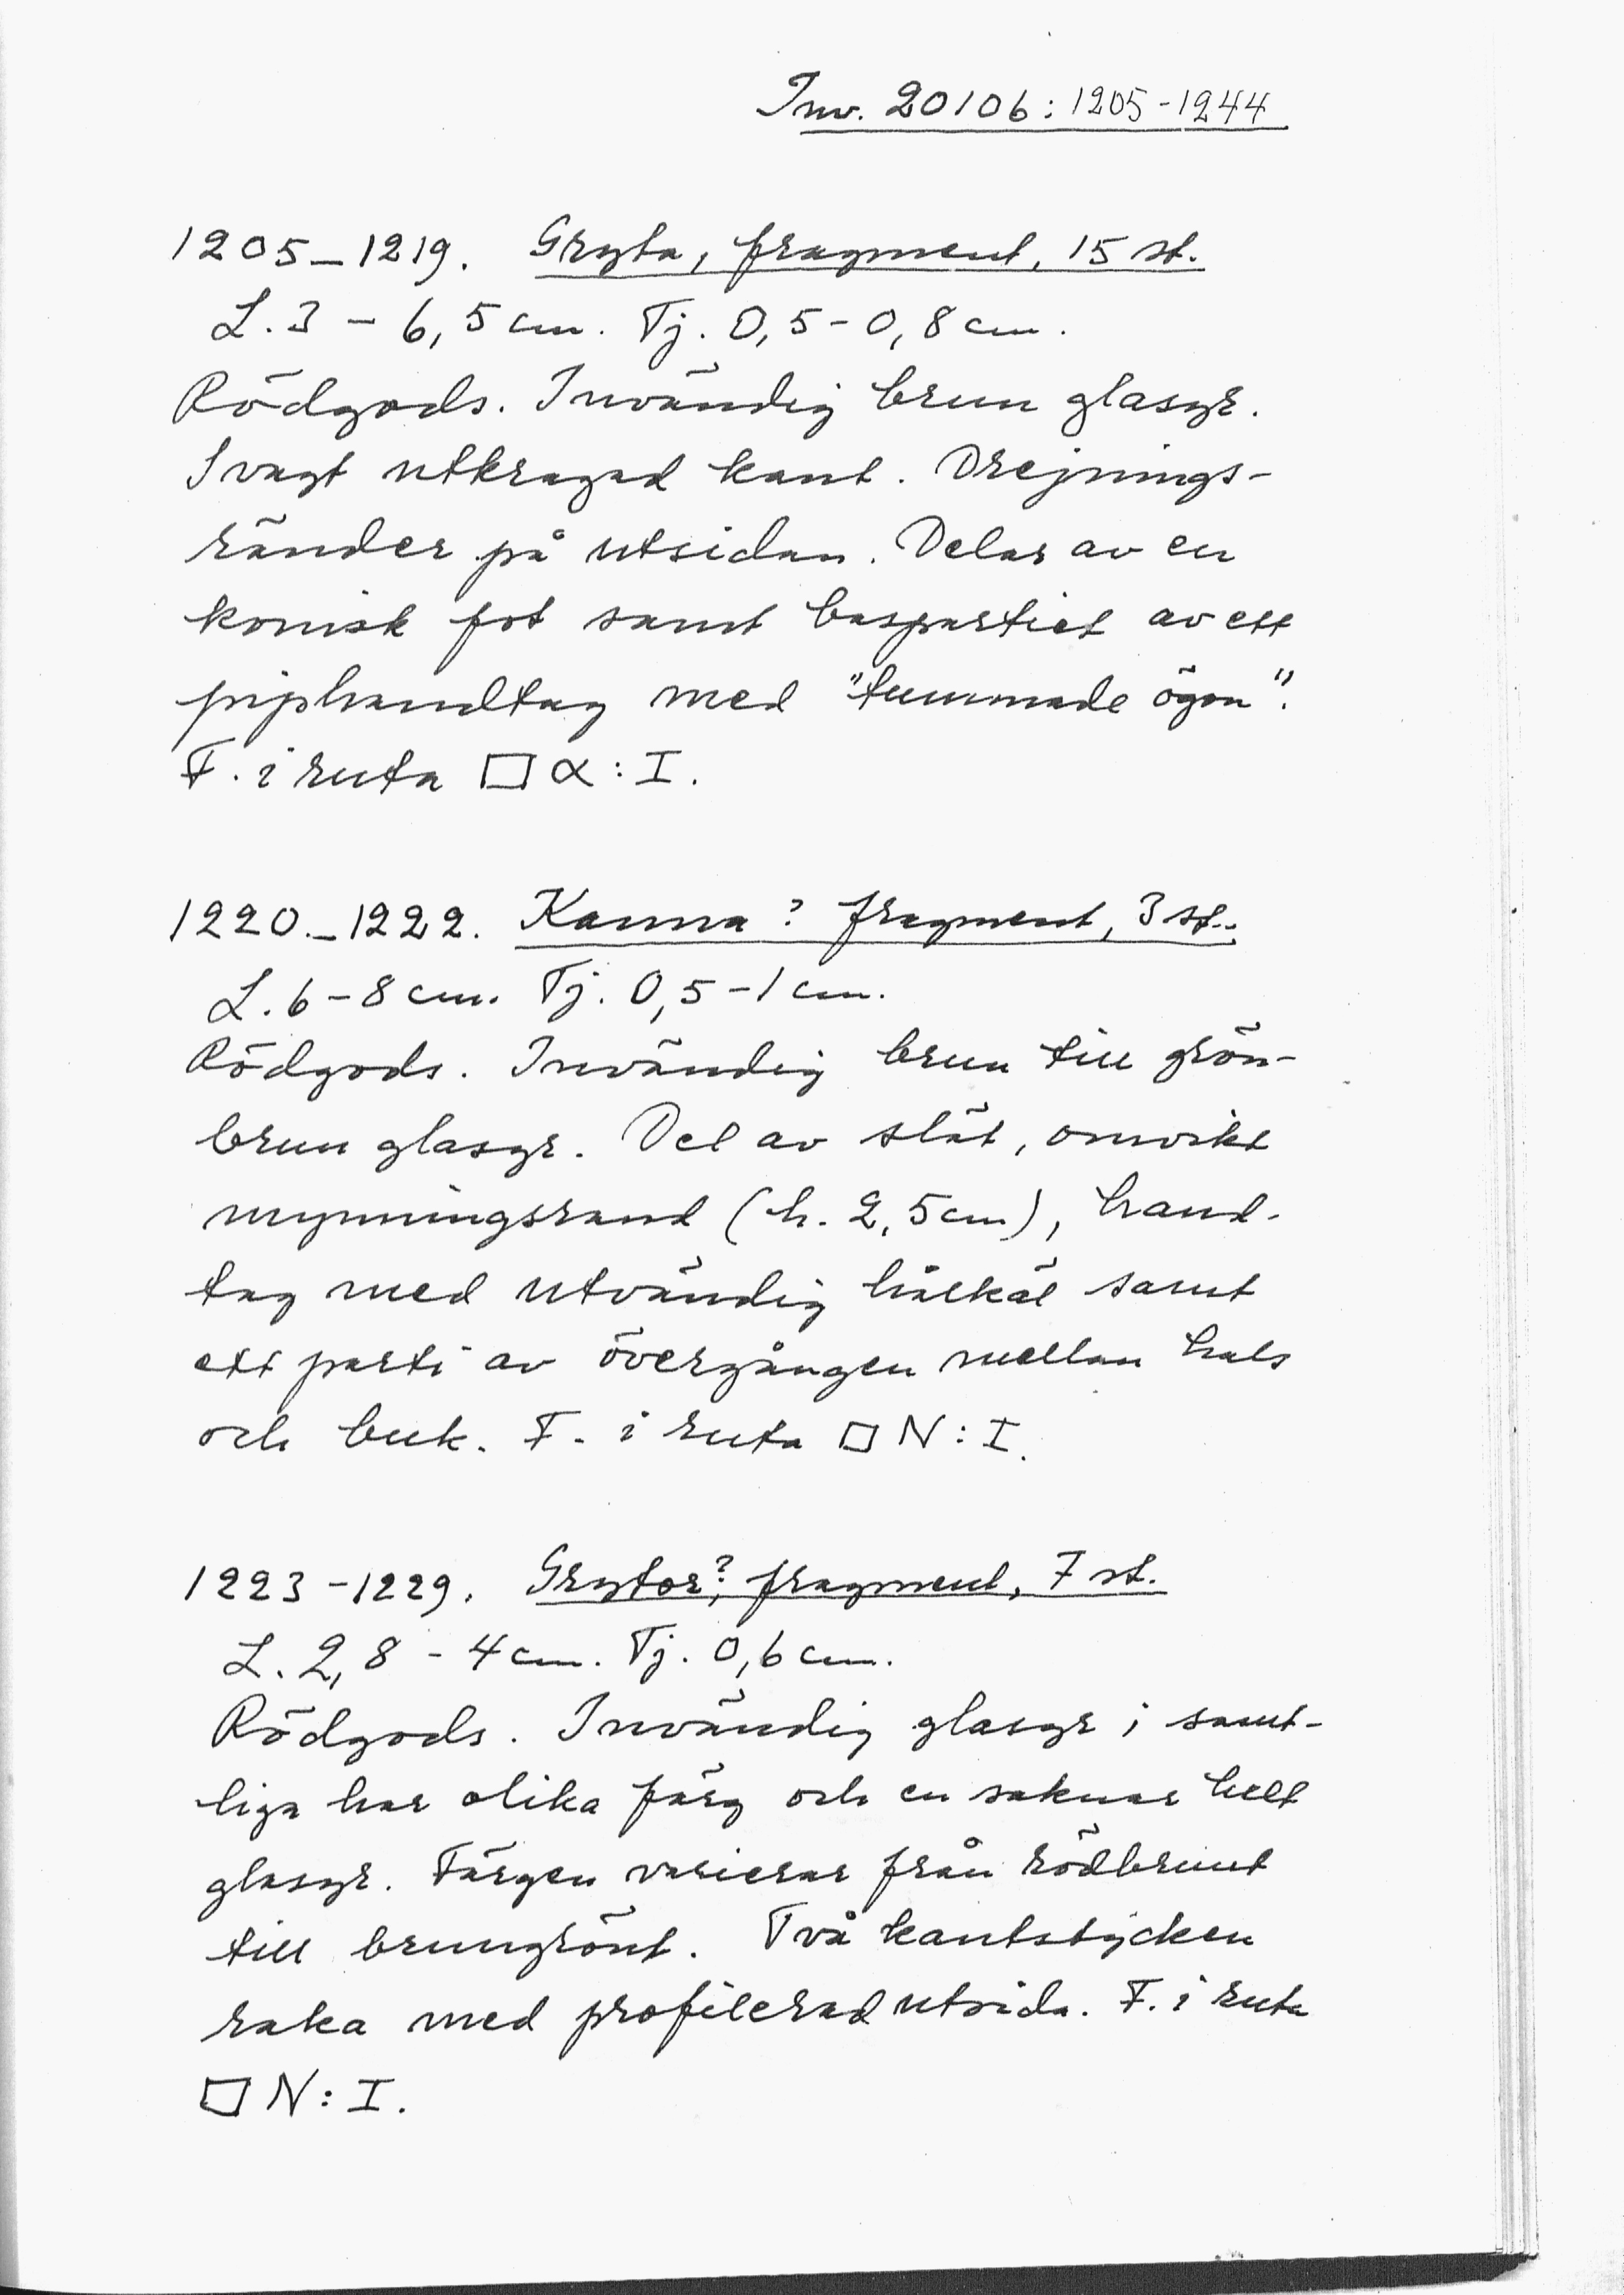 Inv. 20106: 1205-1244
1205-1219. Gryta, fragment, 15 st.
L. 3 - 6,5 cm. Tj. 0,5-0,8 cm.
Rödgods. Invändig brun glasyr.
Svagt utkragad kant. Drejnings-
ränder på utsidan. Delar av en
konisk fot samt baspartiet av ett
piphandtag med "tummade ögon".
F. i ruta □ α: I.
1220-1222. Kanna? fragment, 3 st.
L. 6-8 cm. Tj. 0,5-1 cm.
Rödgods. Invändig brun till grön-
brun glasyr. Del av slät, omvikt
mynningsrand (h. 2,5 cm), hand-
tag med utvändig hålkäl samt
ett parti av övergången mellan hals
och buk. F. i ruta □ N: I.
1223-1229. Grytor?, fragment, 7 st.
L. 2,8 - 4 cm. Tj. 0,6 cm.
Rödgods. Invändig glasyr; samt-
liga har olika färg och en saknar helt
glasyr. Färgen varierar från rödbrunt
till brungrönt. Två kantstycken
raka med profilerad utsida. F. i ruta
□ N: I.